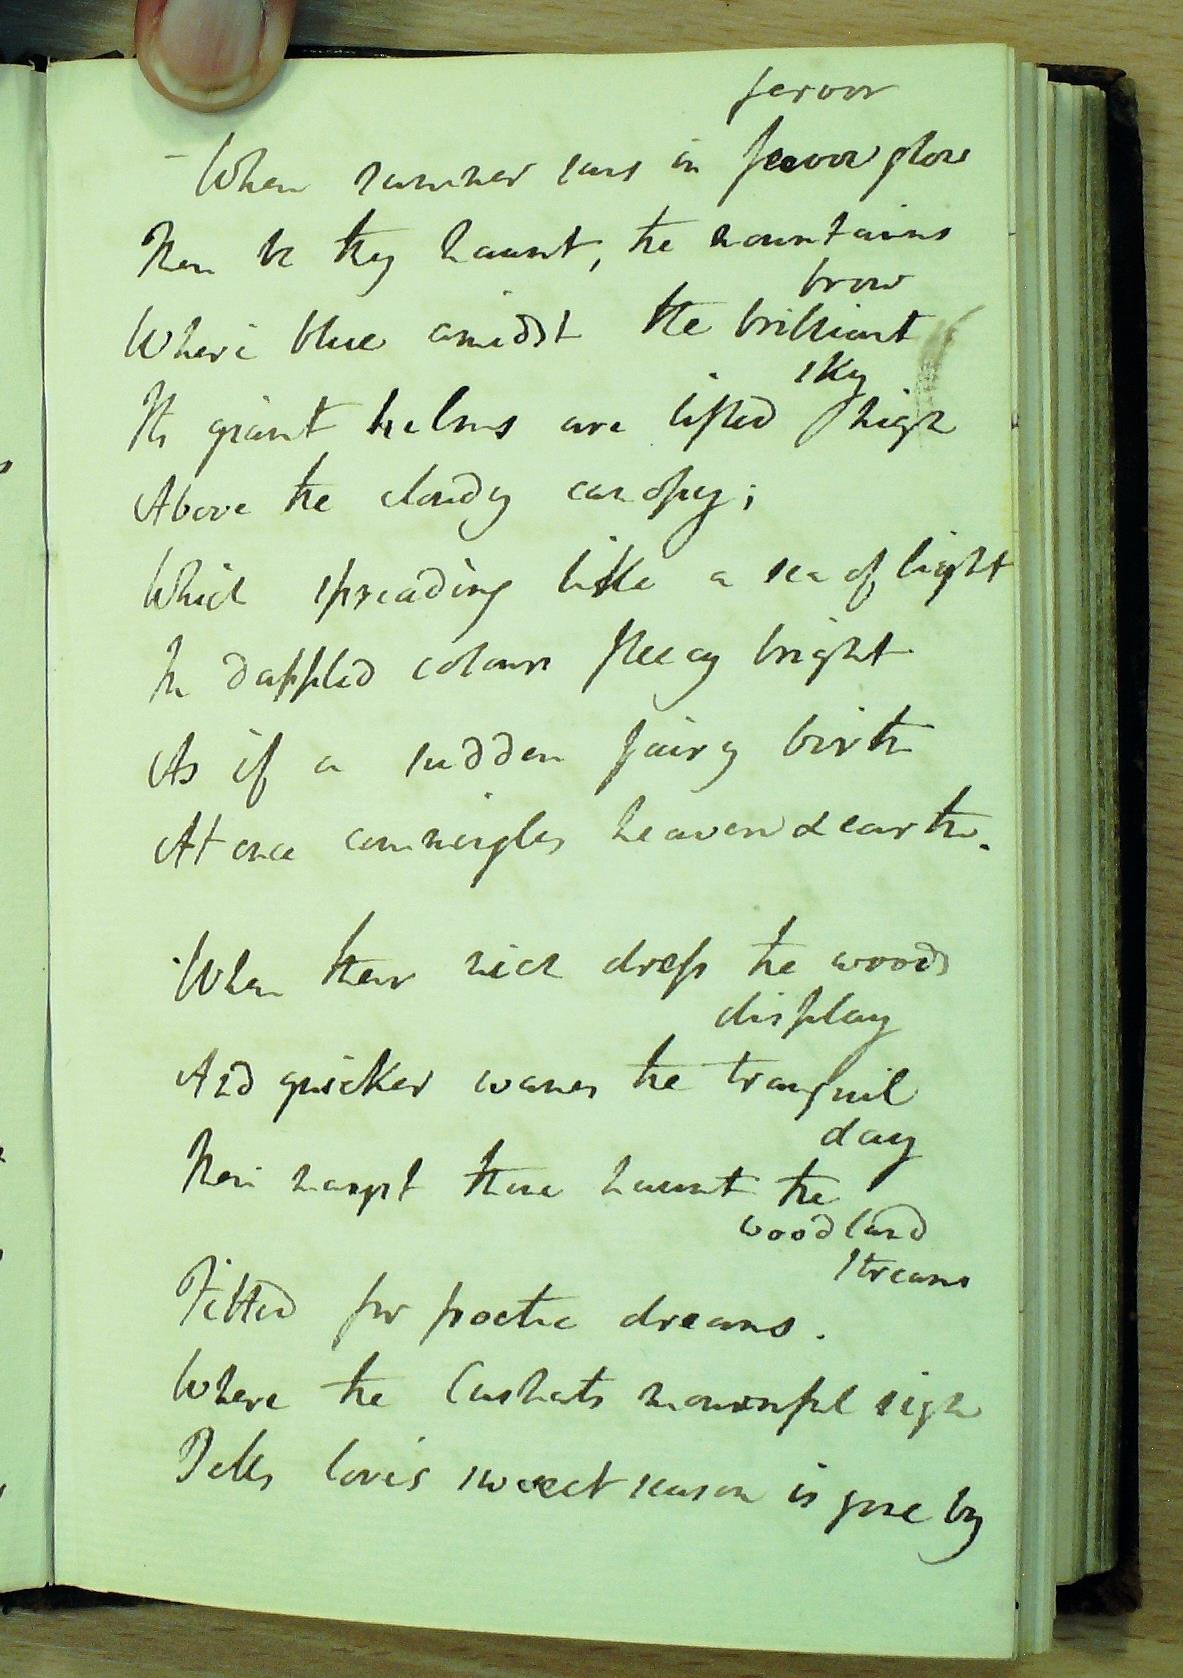 fervor
- When summer suns in fervor glow
Then be thy haunt, the mountains
brow
Where blue amidst the brilliant
sky
Its giant helms are lifted high
Above the cloudy canopy;
Which spreading like a sea of light
In dappled colours fleecy bright
As if a sudden fairy birth
At once commingles heaven & earth.
When their rich dress the woods
display
And quicker wanes the tranquil
day
Then mayst thou haunt the
woodland
streams
Fitted for poetic dreams.
Where the Cushats mournful sigh
Tells love's sweet season is gone by